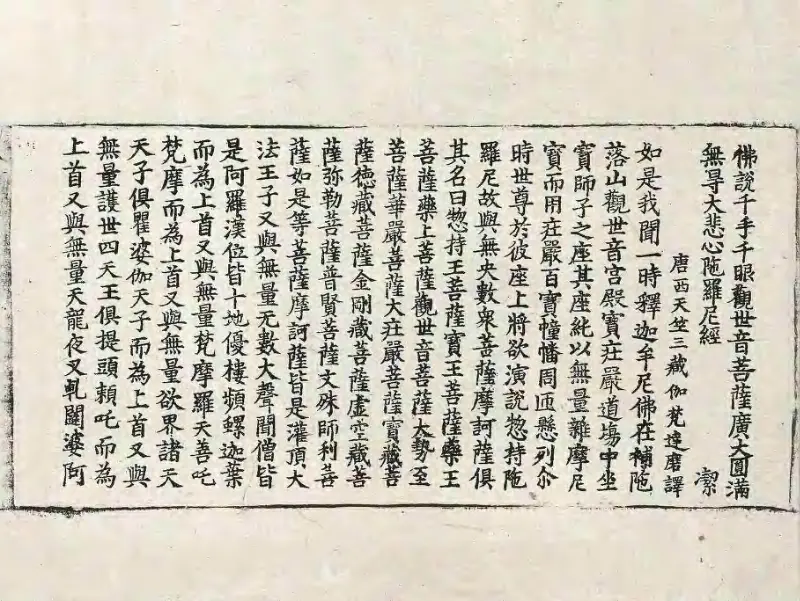 佛說千手千眼觀世音菩薩廣大圓滿
無㝵大悲心陁羅尼經 潔
唐西天竺三藏伽梵達磨譯
如是我聞一時釋迦牟尼佛在補陁
落山觀世音宮殿寶莊嚴道場中坐
寶師子之座其座純以無量雜摩尼
寶而用莊嚴百寶幢幡周匝懸列尒
時世尊於彼座上將欲演說惣持陁
羅尼故與無央數衆菩薩摩訶薩俱
其名曰惣持王菩薩寶王菩薩藥王
菩薩藥上菩薩觀世音菩薩大勢至
菩薩華嚴菩薩大莊嚴菩薩寶藏菩
薩德藏菩薩金剛藏菩薩虛空藏菩
薩弥勒菩薩普賢菩薩文殊師利菩
薩如是等菩薩摩訶薩皆是灌頂大
法王子又與無量无數大聲聞僧皆
是阿羅漢位皆十地優樓頻螺迦葉
而為上首又與無量梵摩羅天善吒
梵摩而為上首又與無量欲界諸天
天子俱瞿婆伽天子而為上首又與
無量護世四天王俱提頭賴吒而為
上首又與無量天龍夜叉乹闥婆阿